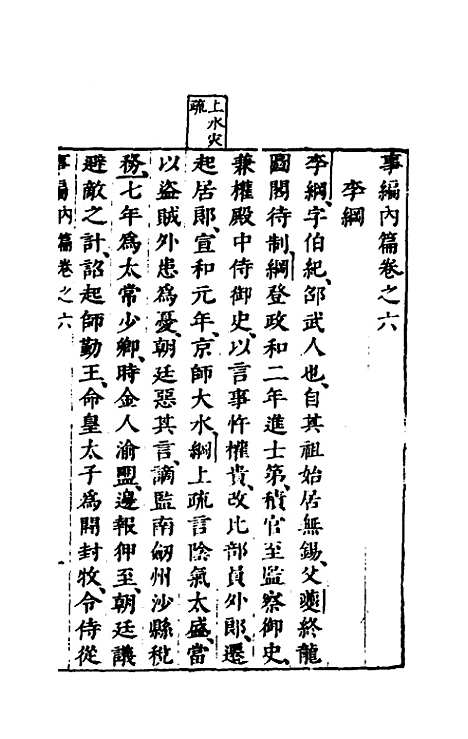 上水災
疏
事編內篇卷之六
李綱
李綱、字伯紀、邵武人也、自其祖始居無錫、父夔終龍
圖閣待制、綱登政和二年進士第、積官至監察御史、
兼權殿中侍御史、以言事忤權貴、改比部員外郎、遷
起居郎、宣和元年、京師大水、綱上疏言陰氣太盛、當
以盜賊外患為憂、朝廷惡其言、謫監南劒州沙縣稅
務、七年為太常少卿、時金人渝盟、邊報狎至、朝廷議
避敵之計、詔起師勤王、命皇太子為開封牧、令侍從
事編內篇卷之六